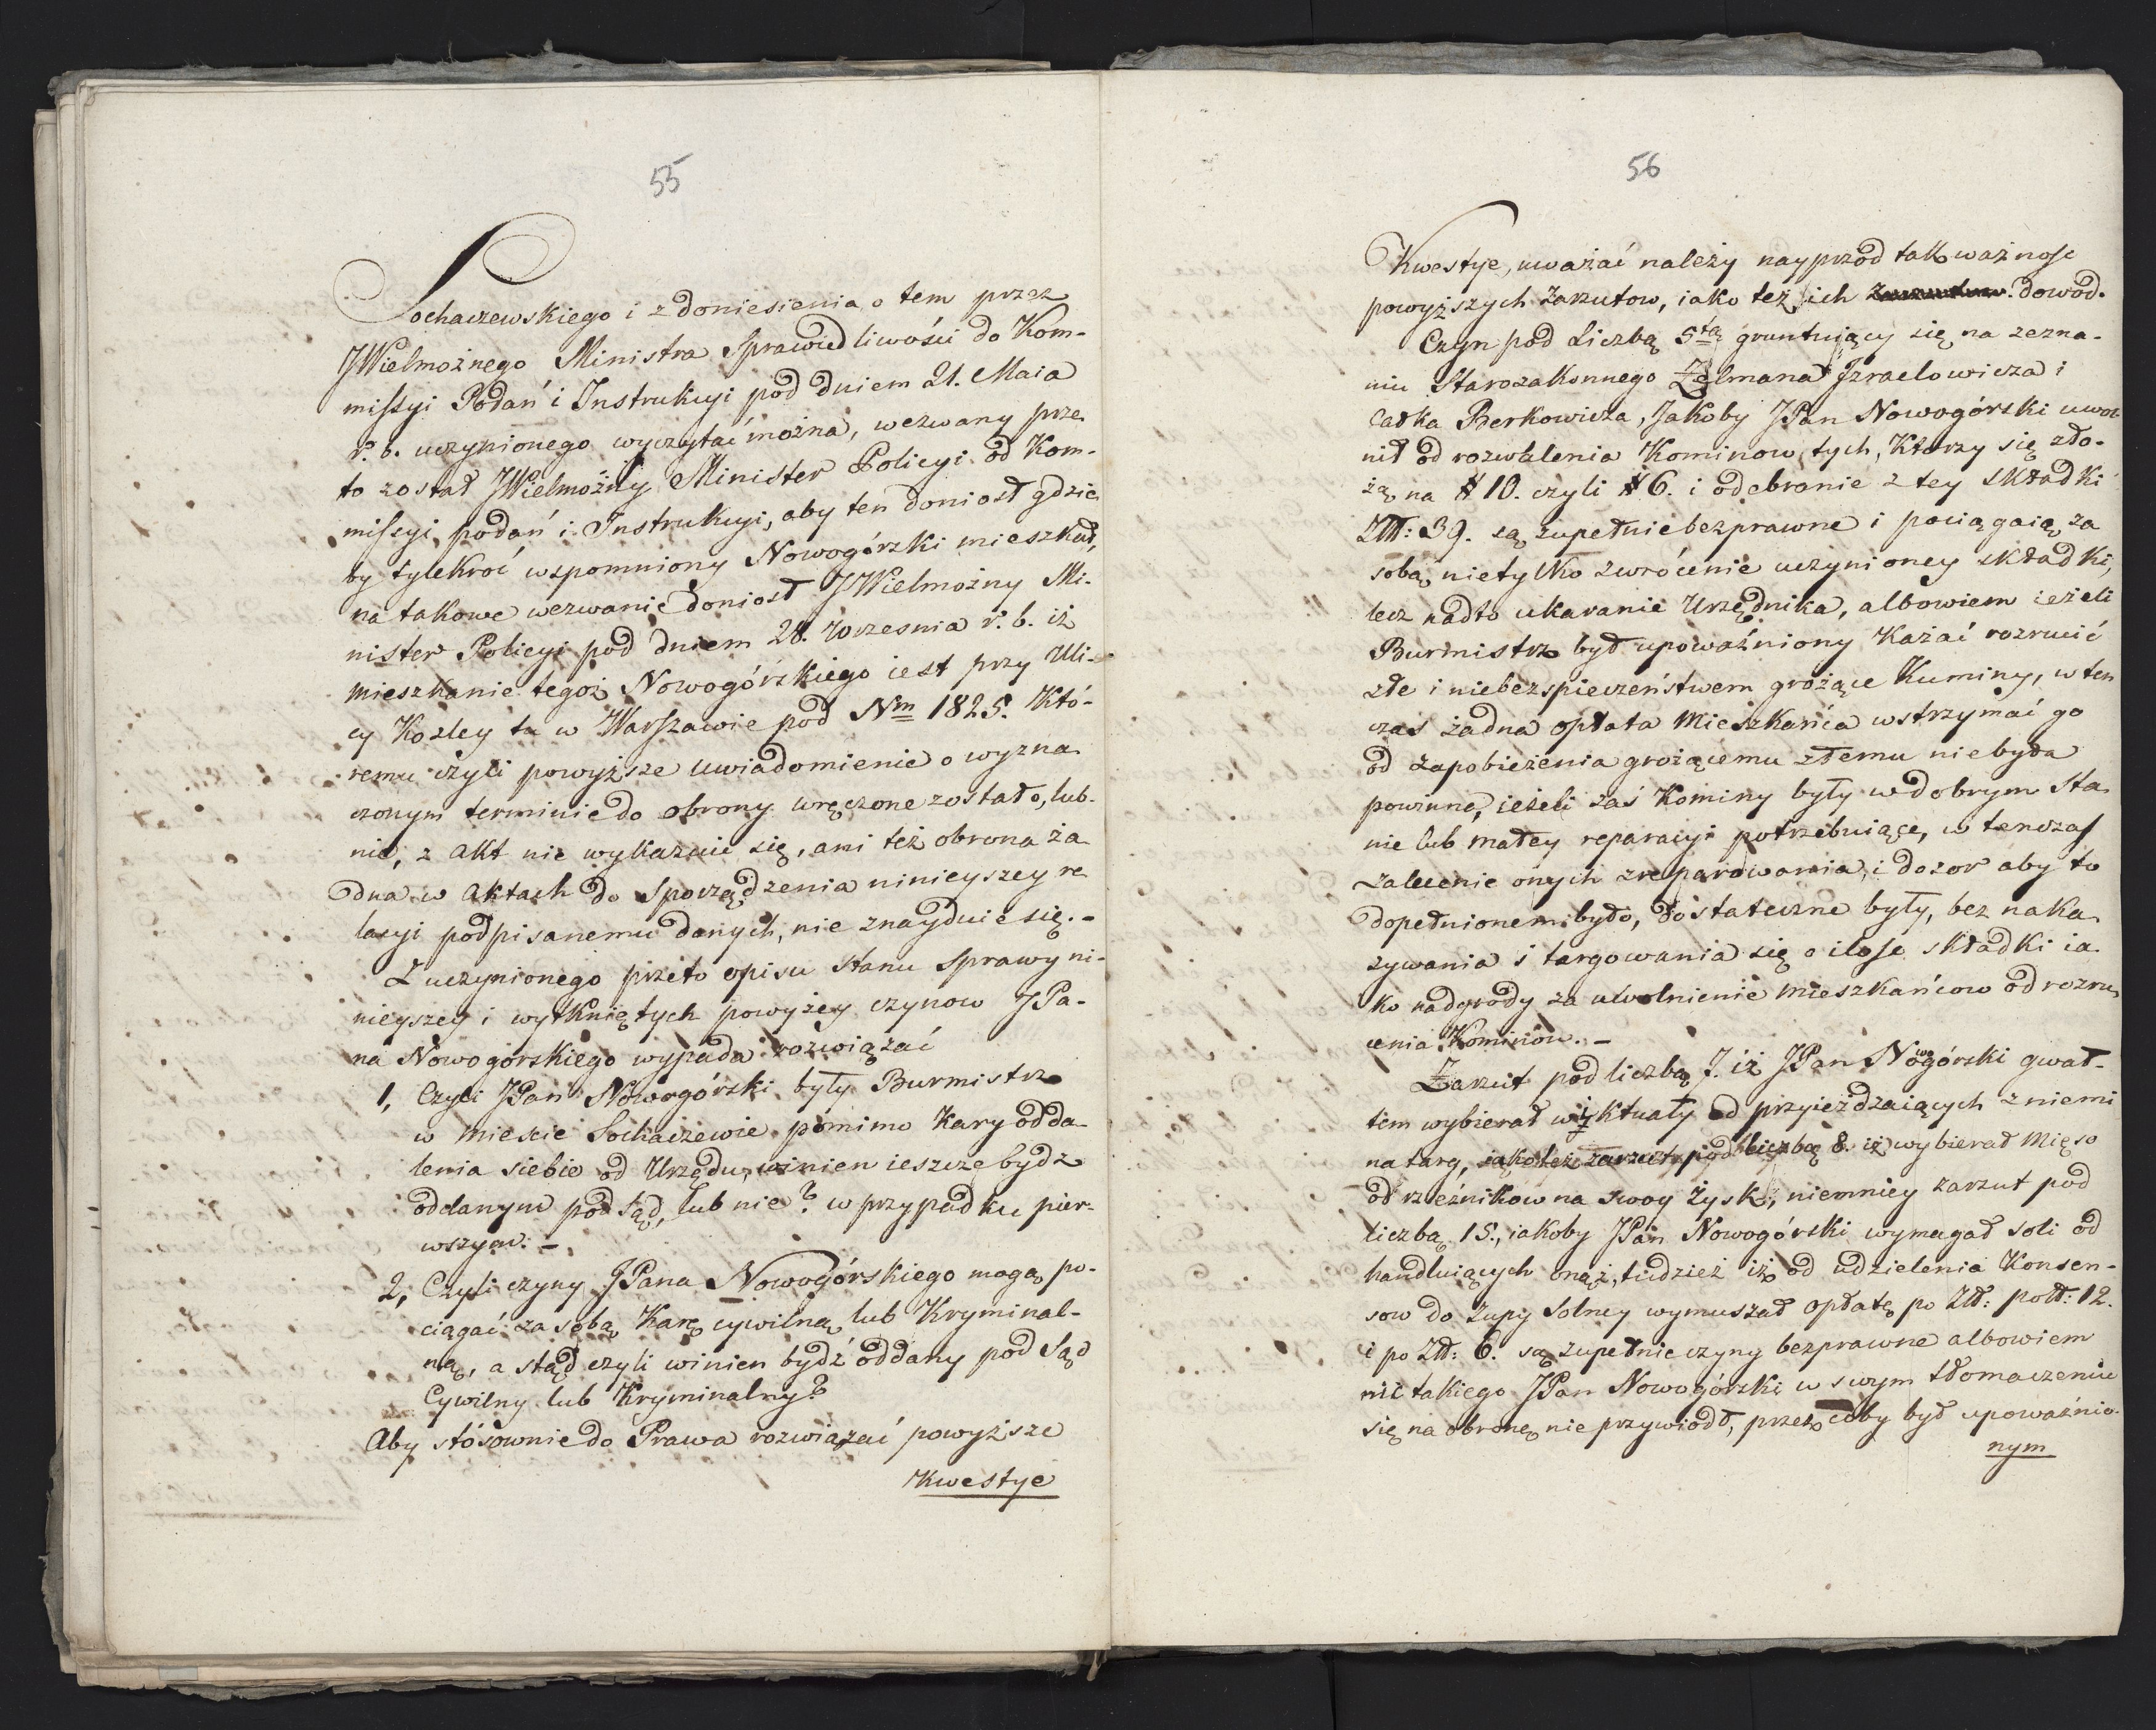 55
Sochaczewskiego i z doniesienia o tem przez
JWielmożnego Ministra Sprawiedliwości do Kom-
missyi Podań i Instrukcyi pod dniem 21. Maia
r. b. uczynionego wyczytać można, wezwany prze
to został JWielmożny Minister Policyi od Kom-
missyi podań i Instrukcyi, aby ten doniosł gdzie
by tylekroć wspomniony Nowogórski mieszkał,
na takowe wezwanie doniosł JWielmożny Mi-
nister Policyi pod dniem 28. Wrzesnia r. b. iż
mieszkanie tegoż Nowogórskiego iest przy Uli-
cy Kozley tu w Warszawie pod Nm 1825. Któ-
remu czyli powyższe uwiadomienie o wyzna
czonym terminie do obrony wręczone zostało, lub
nie, z Akt nie wykazuie się, ani też obrona ża
dna w Aktach do sporządzenia ninieyszey re
lacyi podpisanemu danych, nie znayduie się. -
Z uczynionego przeto opisu stanu sprawy ni-
nieyszey i wytkniętych powyżey czynow JPa-
na Nowogórskiego wypada rozwiązać
1, Czyli JPan Nowogórski były Burmistrz
w Miescie Sochaczewie pomimo Kary odda-
lenia siebie od Urzędu, winien ieszcze bydz
oddanym pod Sąd, lub nie? w przypadku pier-
wszym: -
2, Czyli czyny JPana Nowogórskiego mogą po-
ciągać za sobą Karę cywilną lub Kryminal-
ną, a stąd czyli winien bydź oddany pod Sąd
Cywilny lub Kryminalny?
Aby stósownie do Prawa rozwiązać powyższe
Kwestye
56
Kwestye, uważać należy nayprzod tak ważnosc
powyższych Zarzutow, iako też ich dowod.
Czyn pod Liczbą 5tą gruntuiący się na zezna-
niu Starozakonnego Zelmana Jzraelowicza i
Cadka Berkowicza, Jakoby JPan Nowogórski uwol
nił od rozwalenia Kominow tych, Ktorzy się zło-
żą na # 10. czyli # 6. i odebranie z tey składki
Złł: 39. są zupełnie bezprawne i pociągaią za
sobą nietylko zwrócenie uczynioney składki,
lecz nadto ukaranie Urzędnika, albowiem ieżeli
Burmistrz był upoważniony Kazać rozrucić
złe i niebezspieczeństwem grożące Kuminy, w ten
czas żadna opłata Mieszkańca wstrzymać go
od zapobieżenia grożącemu złemu niebyła
powinna, ieżeli zaś Kominy były w dobrym Sta
nie lub małey reparacyi potrzebuiące, w tenczas
zalecenie onych zreparowania, i dozor aby to
dopełnionem było, dostateczne były, bez naka
zywania i targowania się o ilosc składki ia
ko nadgrody za uwolnienie mieszkańcow od rozru
cenia Kominow. -
Zarzut pod liczbą 7. iż JPan Nowogórski gwał-
tem wybierał wiktuały od przyieżdzaiących z niemi
na targ, iako też zarzut pod liczbą 8. iż wybierał Mięso
od rzeźnikow na swoy Zysk, niemniey zarzut pod
liczbą 15., iakoby JPan Nowogórski wymagał soli od
handluiących onąż, tudzież iż od udzielenia Konsen-
sow do Zupy Solney wymuszał opłatę po Złł: połł: 12.
i po Złł: 6. są zupełnie czyny bezprawne albowiem
nic takiego JPan Nowogórski w swym tłomaczeniu
się na obronę nie przywiodł, przez coby był upoważnio-
nym